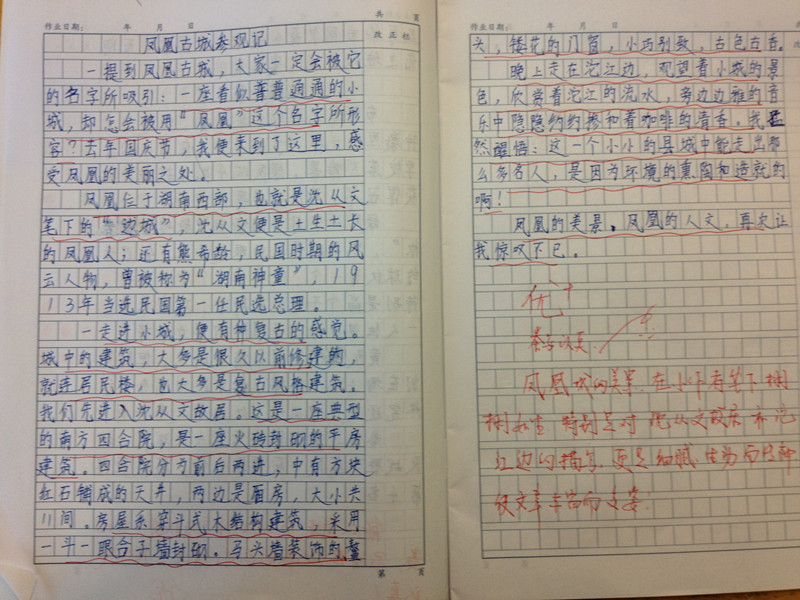 共 页
作业日期： 年 月 日
改正栏
凤凰古城参观记
一提到凤凰古城，大家一定会被它
的名字所吸引：一座看似普普通通的小
城，却怎会被用“凤凰”这个名字所形
容？去年国庆节，我便来到了这里，感
受凤凰的美丽之处。
凤凰位于湖南西部，也就是沈从文
笔下的“边城”，沈从文便是土生土长
的凤凰人；还有熊希龄，民国时期的风
云人物，曾被称为“湖南神童”，19
13年当选民国第一任民选总理。
一走进小城，便有种复古的感觉。
城中的建筑，大多是很久以前修建的，
就连居民楼，也大多是复古风格建筑。
我们先进入沈从文故居。这是一座典型
的南方四合院，是一座火砖封砌的平房
建筑。四合院分为前后两进，中有方块
红石铺成的天井，两边是厢房，大小共
11间。房屋系穿斗式木结构建筑，采用
一斗一眼合子墙封砌。马头墙装饰的鳌
第 页
作业日期： 年 月 日
头，镂花的门窗，小巧别致，古色古香。
晚上走在沱江边，观望着小城的景
色，欣赏着沱江的流水，旁边边雅的音
乐中隐隐约约掺和着咖啡的清香。我
然醒悟：这一个小小的县城中能走出那
么多名人，是因为环境的熏陶和造就的
啊！
凤凰的美景，凤凰的人文，再次让
我惊叹不已。
优+
书写认真
凤凰城的美景在小作者笔下栩
栩如生，特别是对沈从文故居和沱
江边的描写，更是细腻、生动而传神
使文章丰富而多姿！